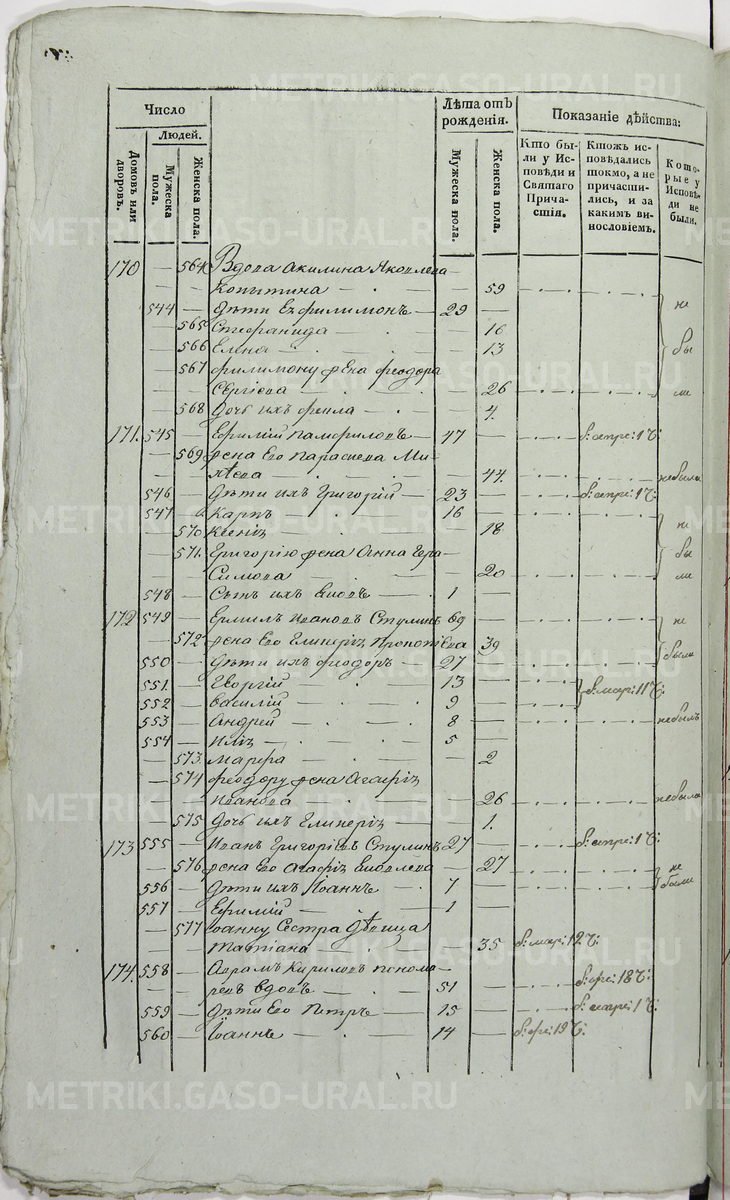 METRIKI.GASO-URAL.RU
Число
Лѣта отъ рожденія.
Показаніе дѣйства:
Людей.
Домовъ или дворовъ.
Мужеска пола.
Женска пола.
Мужеска пола.
Женска пола.
Кто были у Исповѣди и Святаго Причастія.
Ктожъ исповѣдались токмо, а не причастились, и за какимъ винословіемъ.
Которые у Исповѣди не были.
170 — 564 Вдова Акилина Яковлева
Копытина — 59
544 — Дѣти Ея Филимонъ — 29 — не
565 Стефанида — 16
566 Елена — 13 бы
567 Филимону жена Феодора
Сергіева — 26 ли
568 Дочь ихъ Фекла — 4.
171. 545 Ефимій Памфиловъ — 47 —
569 жена Его Параскева Ми
хѣева — 44. небыла
546 — Дѣти ихъ Григорій — 23 —
547 — Карпъ — 16 —
570 Ксенія — 18 не
571. Григорію жена Анна Гера бы
симова — 20 ли
548 — Сынъ ихъ — 1 —
172 549 — Ермилъ Ивановъ Стулинъ 69 не
572 жена Его Гликерія Прокопіева 39
550 — Дѣти ихъ Феодоръ — 27 — были
551. — Георгій — 13 —
552 — Василій — 9 —
553 — Андрей — 8 — небылъ
554 — Илія — 5 —
573. Марфа — 2
574 Феодору жена Агафія
Иванова — 26 небыла
575 Дочь ихъ Гликерія — 1.
173 555 — Иванъ Григоріевъ Стулинъ 27
576 жена Его Агафія — 27 не
556 — Дѣти ихъ Іоаннъ — 7 — были
557 — Ефимій — 1 —
577 Іоанну Сестра Дѣвица
Татіана — 35
174. 558 — Аврамъ Кириловъ Понома
ревъ вдовъ — 51 —
559 — Дѣти Его Петръ — 15 —
560 — Іоаннъ — 14